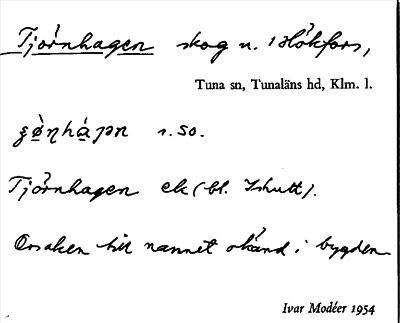 Tjörnhagen skog n. Hökfors,
Tuna sn, Tunaläns hd, Klm. l.
r. SO.
Tjörnhagen ek (bl.
Orsaken till namnet okänd i bygden
Ivar Modéer 1954